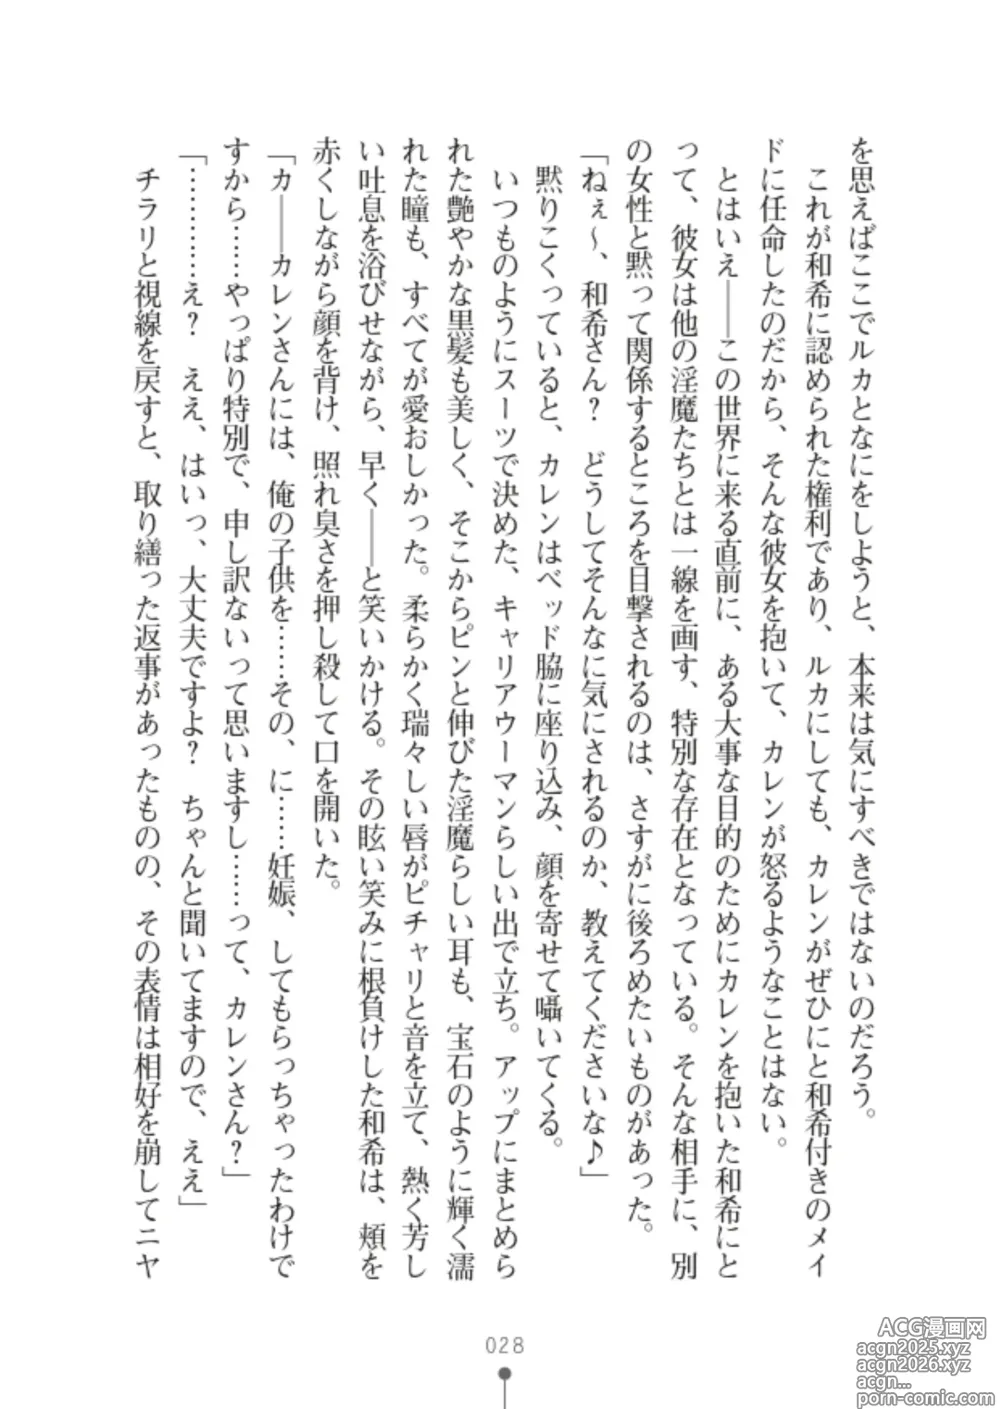 を思えばここでルカとなにをしようと、本来は気にすべきではないのだろう。
これが和希に認められた権利であり、ルカにしても、カレンがぜひにと和希付きのメイ
ドに任命したのだから、そんな彼女を抱いて、カレンが怒るようなことはない。
とはいえ――この世界に来る直前に、ある大事な目的のためにカレンを抱いた和希にと
って、彼女は他の淫魔たちとは一線を画す、特別な存在となっている。そんな相手に、別
の女性と黙って関係するところを目撃されるのは、さすがに後ろめたいものがあった。
「ねぇ～、和希さん？　どうしてそんなに気にされるのか、教えてくださいな♪」
黙りこくっていると、カレンはベッド脇に座り込み、顔を寄せて囁いてくる。
いつものようにスーツで決めた、キャリアウーマンらしい出で立ち。アップにまとめら
れた艶やかな黒髪も美しく、そこからピンと伸びた淫魔らしい耳も、宝石のように輝く濡
れた瞳も、すべてが愛おしかった。柔らかく瑞々しい唇がピチャリと音を立て、熱く芳し
い吐息を浴びせながら、早く――と笑いかける。その眩い笑みに根負けした和希は、頬を
赤くしながら顔を背け、照れ臭さを押し殺して口を開いた。
「カ――カレンさんには、俺の子供を……その、に……妊娠、してもらっちゃったわけで
すから……やっぱり特別で、申し訳ないって思いますし……って、カレンさん？」
「…………え？　ええ、はいっ、大丈夫ですよ？　ちゃんと聞いてますので、ええ」
チラリと視線を戻すと、取り繕った返事があったものの、その表情は相好を崩してニヤ
028
ACG漫画网
acgn2025.xyz
acgn2026.xyz
acgn...
porn-comic.com